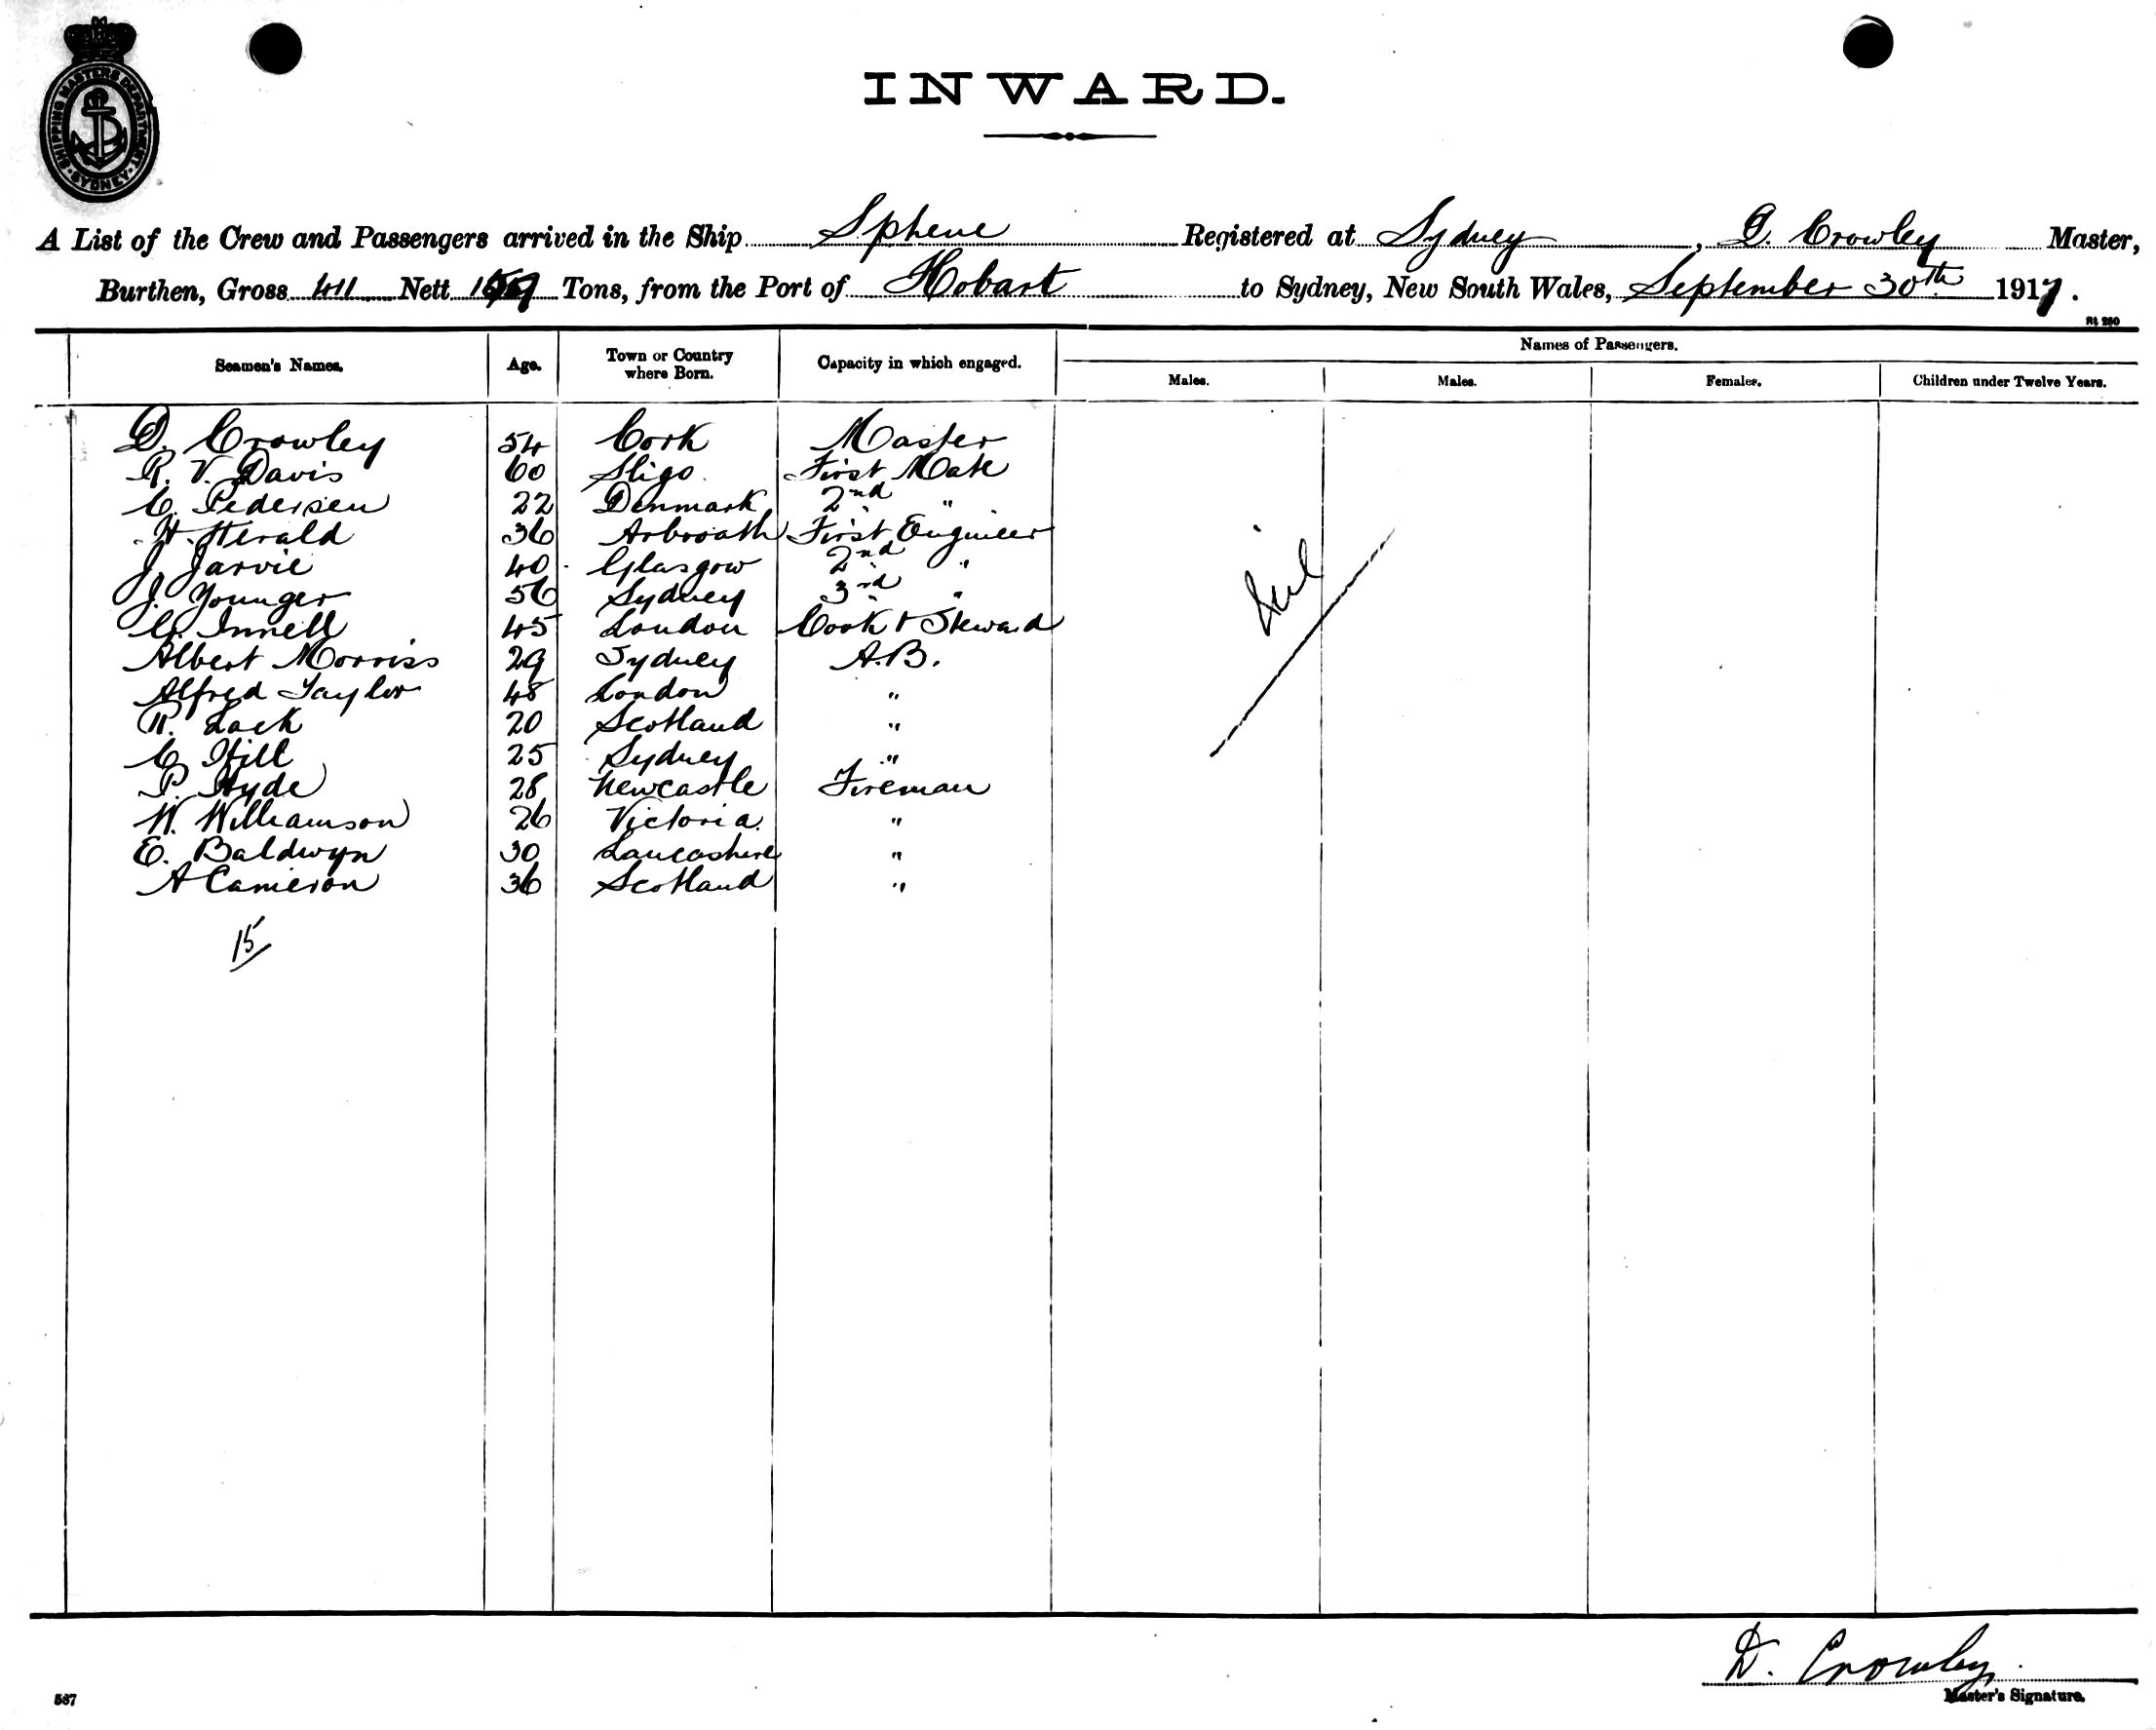 SHIPPING MASTERS DEPARTMENT SYDNEY
INWARD.
A List of the Crew and Passengers arrived in the Ship Sphene Registered at Sydney, D. Crowley Master,
Burthen, Gross 411 Nett Tons, from the Port of Hobart to Sydney, New South Wales, September 30th 1917.
Seamen's Names. Age. Town or Country where Born. Capacity in which engaged. Names of Passengers.
Males. Males. Females. Children under Twelve Years.
D. Crowley 54 Cork Master
R. V. Davis 60 Sligo First Mate
C. Pedersen 22 Denmark 2nd "
H. Herald 36 Arbroath First Engineer
J. Jarvie 40 Glasgow 2nd "
J. Younger 56 Sydney 3rd "
Innell 45 London Cook & Steward
Albert Morriss 29 Sydney A.B.
Alfred Taylor 48 London "
R. Lack 20 Scotland "
C. Hill 25 Sydney "
P. Hyde 28 Newcastle Fireman
W. Williamson 26 Victoria. "
E. Baldwyn 30 Lancashire "
A Cameron 36 Scotland "
Nil
15
D. Crowley
Master's Signature.
587